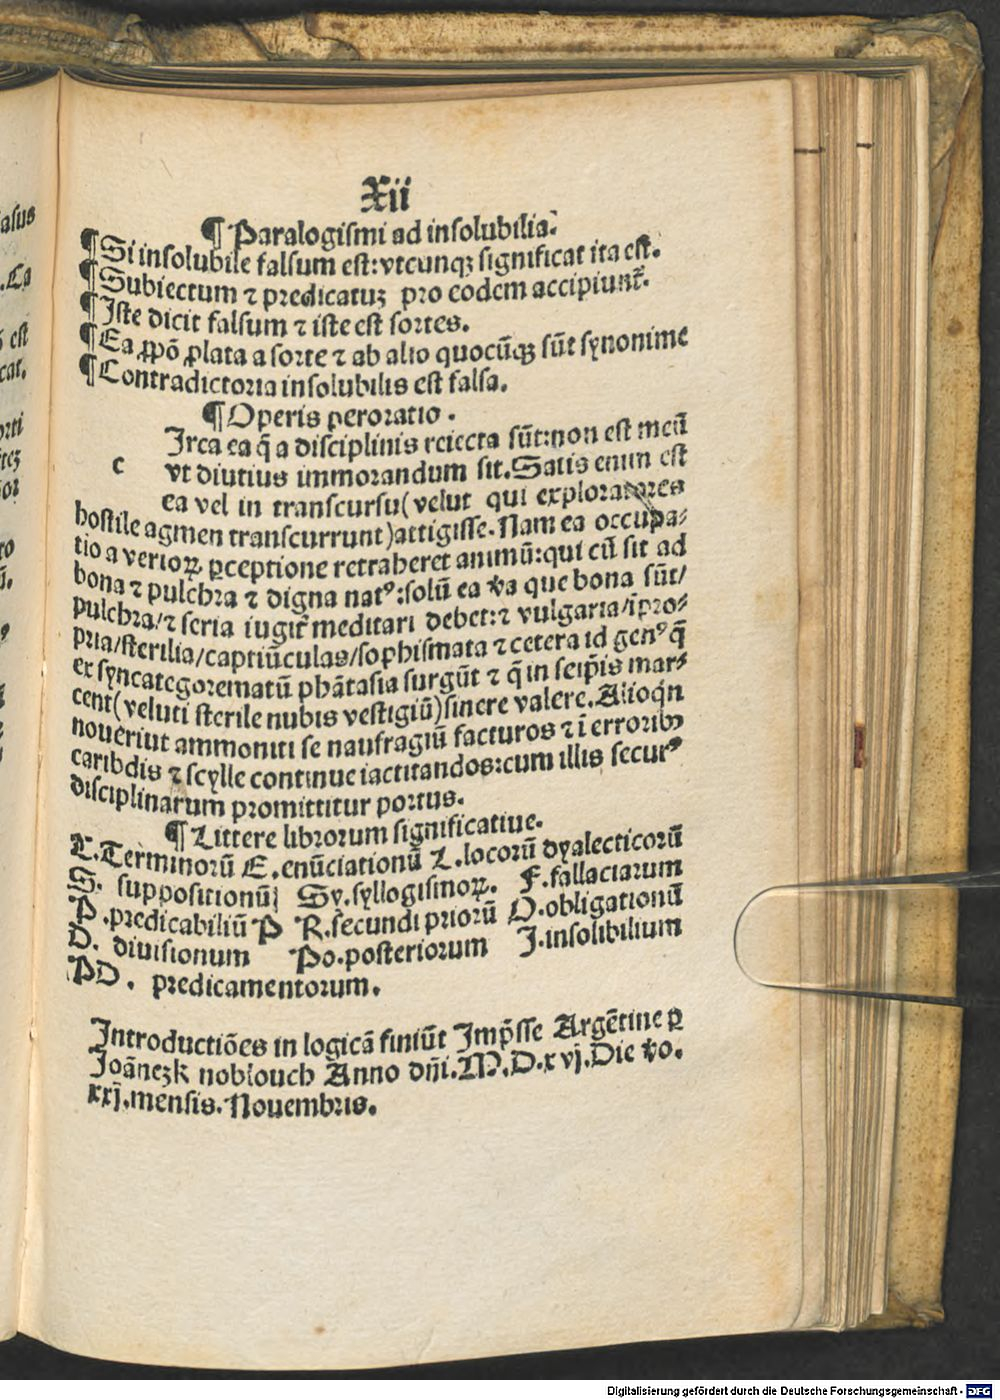 Xii
¶ Paralogismi ad insolubilia.
¶ Si insolubile falsum est: vtcunqꝫ significat ita est.
¶ Subiectum ⁊ predicatuꝫ pro eodem accipiunt᷑.
¶ Iste dicit falsum ⁊ iste est sortes.
¶ Ea ꝓpõ ꝓlata a sorte ⁊ ab alio quocũqꝫ sũt synonime
¶ Contradictoria insolubilis est falsa.
¶ Operis peroratio.
c Irca ea q̃ a disciplinis reiecta sũt: non est meũ
vt diutius immorandum sit. Satis enim est
ea vel in transcursu (velut qui exploratores
hostile agmen transcurrunt) attigisse. Nam ea occupa⸗
tio a verioꝝ ꝑceptione retraheret animũ: qui cũ sit ad
bona ⁊ pulchra ⁊ digna natꝰ: solũ ea v̾a que bona sũt/
pulchra/ ⁊ seria iugit᷑ meditari debet: ⁊ vulgaria/ ĩpro⸗
pria/ sterilia/ captiũculas/ sophismata ⁊ cetera id genꝰ q̃
ex syncategorematũ phãtasia surgũt ⁊ q̃ in seip̃is mar⸗
cent (veluti sterile nubis vestigiũ) sinere valere. Alioq̇n
nouerint ammoniti se naufragiũ facturos ⁊ ĩ erroribꝰ
caribdis ⁊ scylle continue iactitandos: cum illis securꝰ
disciplinarum promittitur portus.
¶ Littere librorum significatiue.
T. Terminorũ E. enũciationũ L. locorũ dyalecticorũ
S. suppositionũ Sy. syllogismoꝝ. F. fallaciarum
P. predicabiliũ P R. secundi priorũ O. obligationũ
D. diuisionum Po. posteriorum I. insolibilium
PD. predicamentorum.
Introductiões in logicã finiũt Imp̃sse Argẽtine ꝑ
Joãneꝫ k noblouch Anno dñi. M. D. x vj. Die v̾o.
xxj. mensis. Nouembris.
asus
. Ca
est
cat.
Digitalisierung gefördert durch die Deutsche Forschungsgemeinschaft - DFG